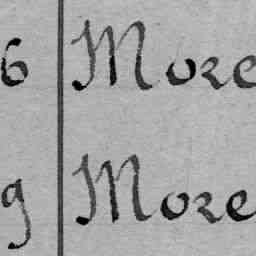 6 More
9 More